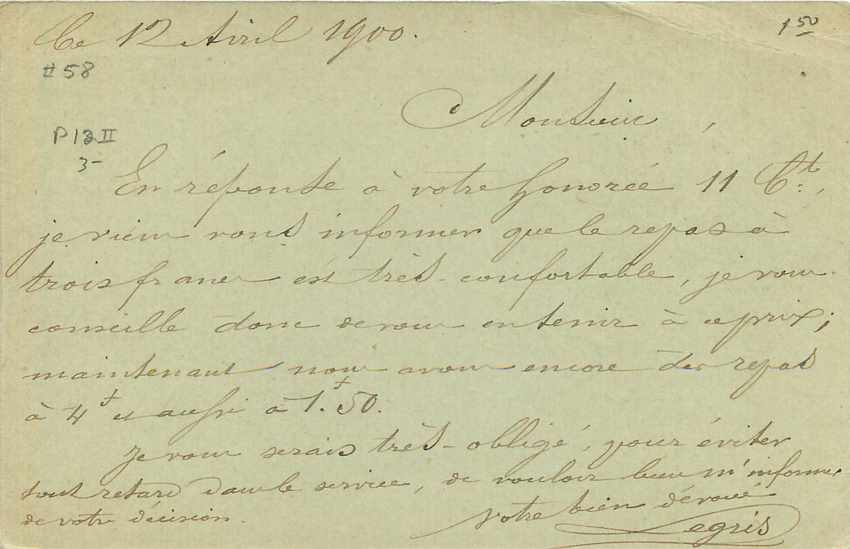 Ce 12 Avril 1900.
1 50
# 58
Monsieur,
P12 II
3-
En réponse à votre honorée 11 Ct,
je viens vous informer que le repas à
trois francs est très-confortable, je vous
conseille donc de vous en tenir à ce prix;
maintenant nous avons encore des repas
à 4f et aussi à 1f.50.
Je vous serais très-obligé, pour éviter
tout retard dans le service, de vouloir bien m'informer
de votre décision.
Votre bien dévoué
Legris